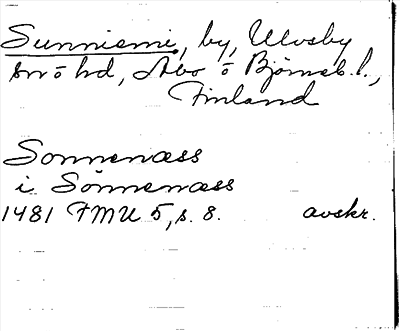 Sunniemi, by, Ulvsby
sn o hd, Åbo o Björneb. l.,
Finland
Sonnenæss
i Sonnenæss
1481 FMU 5, s. 8. avskr.